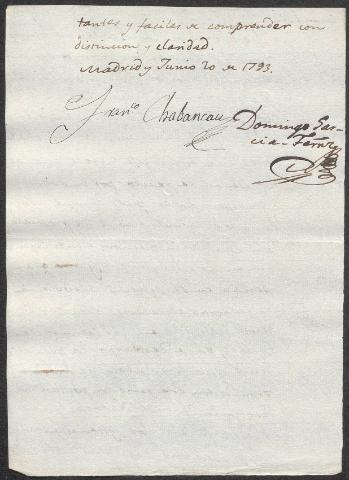 tantes y faciles de comprender con
distincion, y claridad.
Madrid y Junio 20 de 1793.
Fran.co Chabaneau
Domingo Gar-
cia-Fernz